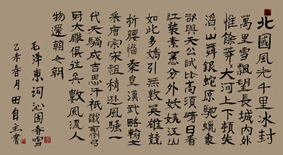 北國風光千里冰封
萬里雪飄望長城內外
惟餘莽大河上下頓失
滔山舞銀蛇原馳蠟象
欲與天公試比高須晴日看
紅裝素裹分外妖嬈江山
如此多嬌引無數英雄競
折腰惜秦皇漢武略輸文
采唐宗宋祖稍遜風騷一
代天驕成吉思汗祇識彎弓
射大雕俱往矣數風流人
物還看今朝
毛澤東詞沁園春雪
乙未春月田自書